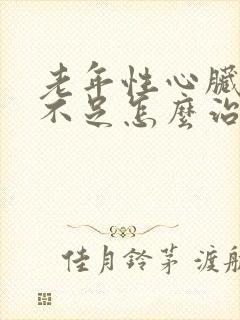 老年性心臟
不足怎麼治
佳月鈴茅 渡航